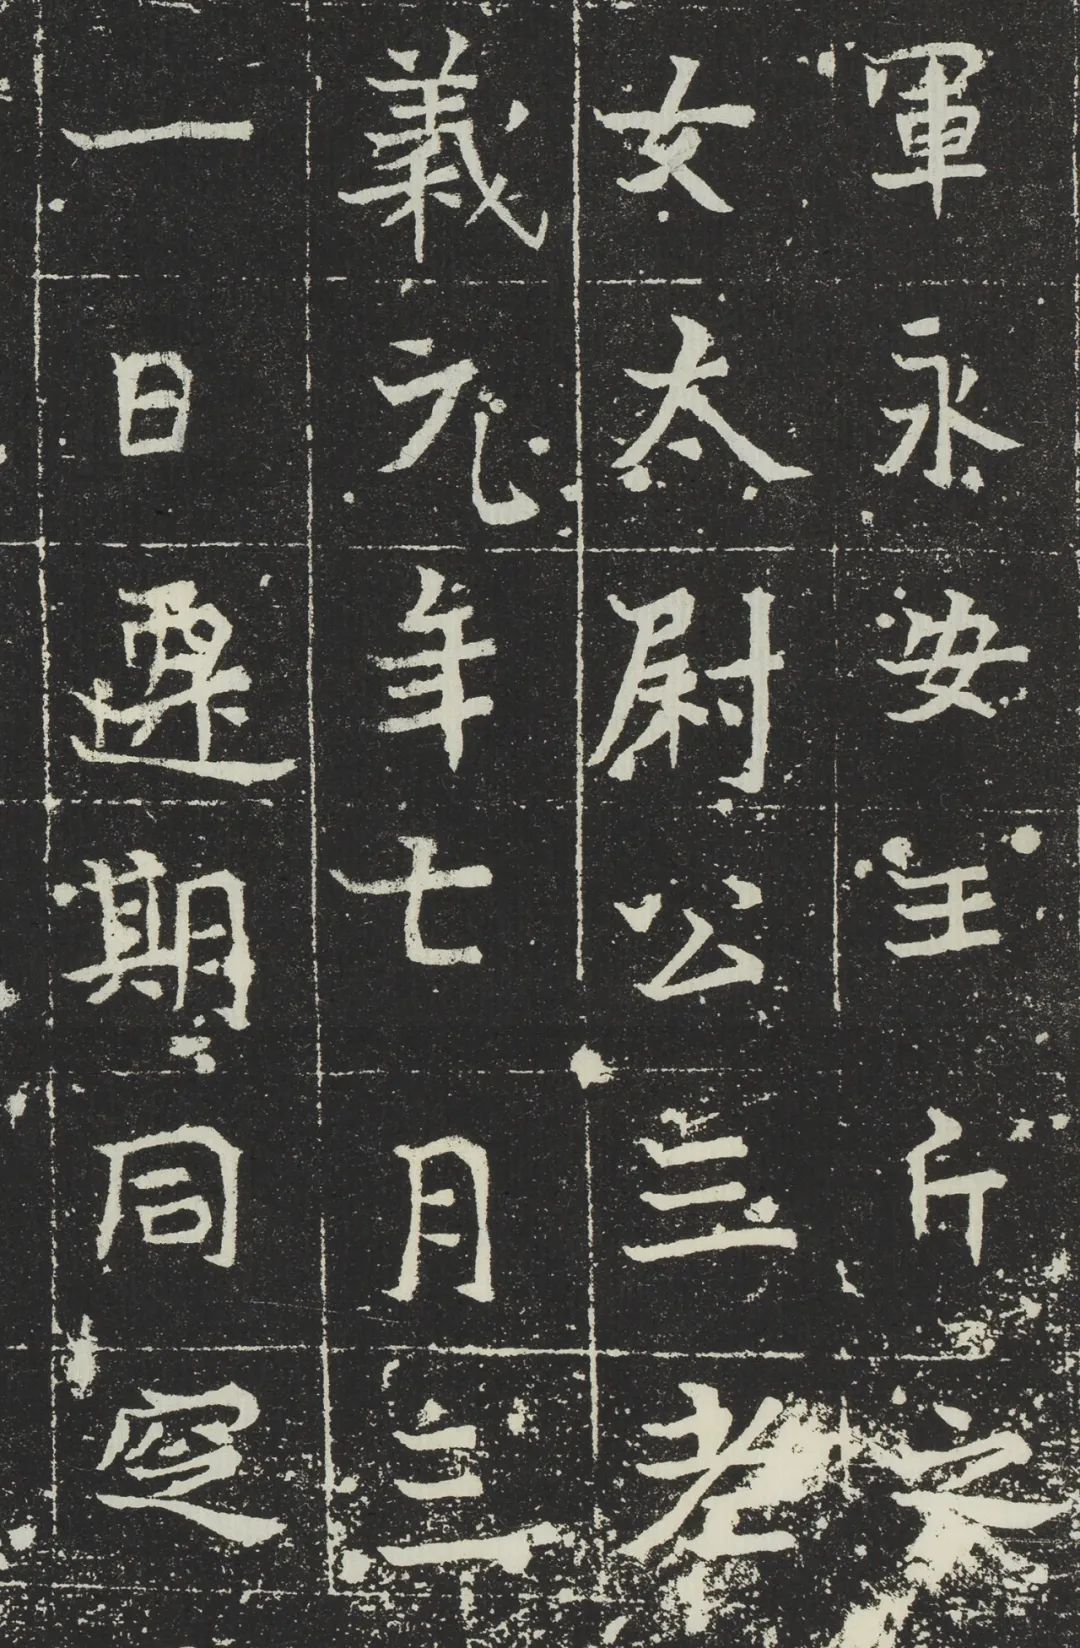 軍永安王斤
女太尉公三老
義元年七月三
一日遷期同窆